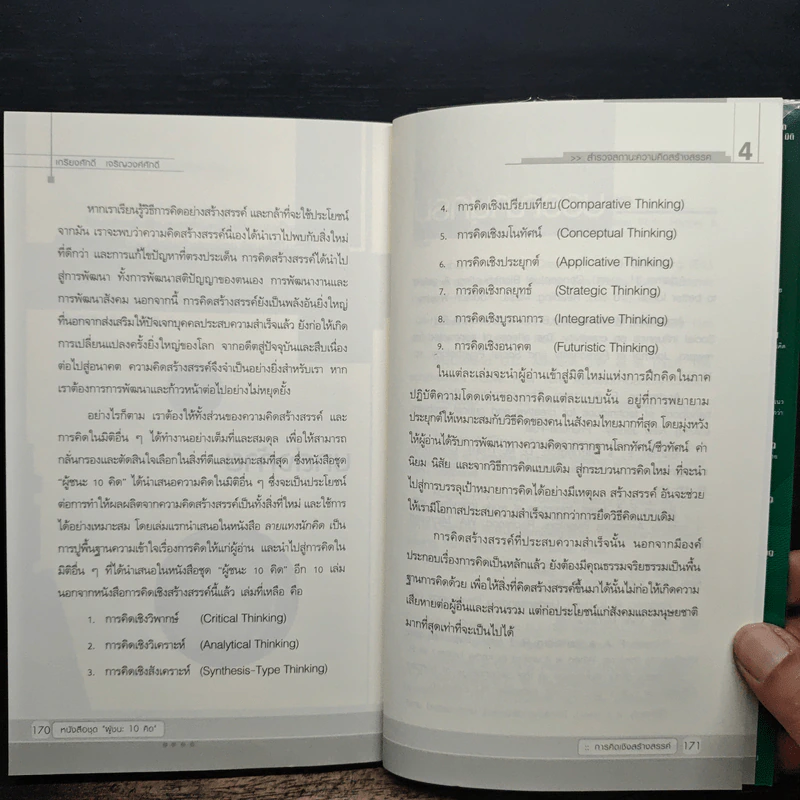 เกรียงศักดิ์ เจริญวงศ์ศักดิ์
หากเราเรียนรู้วิธีการคิดอย่างสร้างสรรค์ และกล้าที่จะใช้ประโยชน์
จากมัน เราจะพบว่าความคิดสร้างสรรค์นี่เองได้นำเราไปพบกับสิ่งใหม่
ที่ดีกว่า และการแก้ไขปัญหาที่ตรงประเด็น การคิดสร้างสรรค์ได้นำไป
สู่การพัฒนา ทั้งการพัฒนาสติปัญญาของตนเอง การพัฒนางานและ
การพัฒนาสังคม นอกจากนี้ การคิดสร้างสรรค์ยังเป็นพลังอันยิ่งใหญ่
ที่นอกจากส่งเสริมให้ปัจเจกบุคคลประสบความสำเร็จแล้ว ยังก่อให้เกิด
การเปลี่ยนแปลงครั้งยิ่งใหญ่ของโลก จากอดีตสู่ปัจจุบันและสืบเนื่อง
ต่อไปสู่อนาคต ความคิดสร้างสรรค์จึงจำเป็นอย่างยิ่งสำหรับเรา หาก
เราต้องการการพัฒนาและก้าวหน้าต่อไปอย่างไม่หยุดยั้ง
อย่างไรก็ตาม เราต้องให้ทั้งส่วนของความคิดสร้างสรรค์ และ
การคิดในมิติอื่น ๆ ได้ทำงานอย่างเต็มที่และสมดุล เพื่อให้สามารถ
กลั่นกรองและตัดสินใจเลือกในสิ่งที่ดีและเหมาะสมที่สุด ซึ่งหนังสือชุด
"ผู้ชนะ 10 คิด" ได้นำเสนอความคิดในมิติอื่น ๆ ซึ่งจะเป็นประโยชน์
ต่อการทำให้ผลผลิตจากความคิดสร้างสรรค์เป็นทั้งสิ่งที่ใหม่ และใช้การ
ได้อย่างเหมาะสม โดยเล่มแรกนำเสนอในหนังสือ ลายแทงนักคิด เป็น
การปูพื้นฐานความเข้าใจเรื่องการคิดให้แก่ผู้อ่าน และนำไปสู่การคิดใน
มิติอื่น ๆ ที่ได้นำเสนอในหนังสือชุด "ผู้ชนะ 10 คิด" อีก 10 เล่ม
นอกจากหนังสือการคิดเชิงสร้างสรรค์นี้แล้ว เล่มที่เหลือ คือ
1. การคิดเชิงวิพากษ์ (Critical Thinking)
2. การคิดเชิงวิเคราะห์ (Analytical Thinking)
3. การคิดเชิงสังเคราะห์ (Synthesis-Type Thinking)
170 หนังสือชุด "ผู้ชนะ 10 คิด"
>> สำรวจสถานะความคิดสร้างสรรค์ 4
4. การคิดเชิงเปรียบเทียบ (Comparative Thinking)
5. การคิดเชิงมโนทัศน์ (Conceptual Thinking)
6. การคิดเชิงประยุกต์ (Applicative Thinking)
7. การคิดเชิงกลยุทธ์ (Strategic Thinking)
8. การคิดเชิงบูรณาการ (Integrative Thinking)
9. การคิดเชิงอนาคต (Futuristic Thinking)
ในแต่ละเล่มจะนำผู้อ่านเข้าสู่มิติใหม่แห่งการฝึกคิดในภาค
ปฏิบัติความโดดเด่นของการคิดแต่ละแบบนั้น อยู่ที่การพยายาม
ประยุกต์ให้เหมาะสมกับวิธีคิดของคนในสังคมไทยมากที่สุด โดยมุ่งหวัง
ให้ผู้อ่านได้รับการพัฒนาทางความคิดจากรากฐานโลกทัศน์/ชีวทัศน์ ค่า
นิยม นิสัย และจากวิธีการคิดแบบเดิม สู่กระบวนการคิดใหม่ ที่จะนำ
ไปสู่การบรรลุเป้าหมายการคิดได้อย่างมีเหตุผล สร้างสรรค์ อันจะช่วย
ให้เรามีโอกาสประสบความสำเร็จมากกว่าการยึดวิธีคิดแบบเดิม
การคิดสร้างสรรค์ที่ประสบความสำเร็จนั้น นอกจากมีองค์
ประกอบเรื่องการคิดเป็นหลักแล้ว ยังต้องมีคุณธรรมจริยธรรมเป็นพื้น
ฐานการคิดด้วย เพื่อให้สิ่งที่คิดสร้างสรรค์ขึ้นมาได้นั้นไม่ก่อให้เกิดความ
เสียหายต่อผู้อื่นและส่วนรวม แต่ก่อประโยชน์แก่สังคมและมนุษยชาติ
มากที่สุดเท่าที่จะเป็นไปได้
:: การคิดเชิงสร้างสรรค์ 171